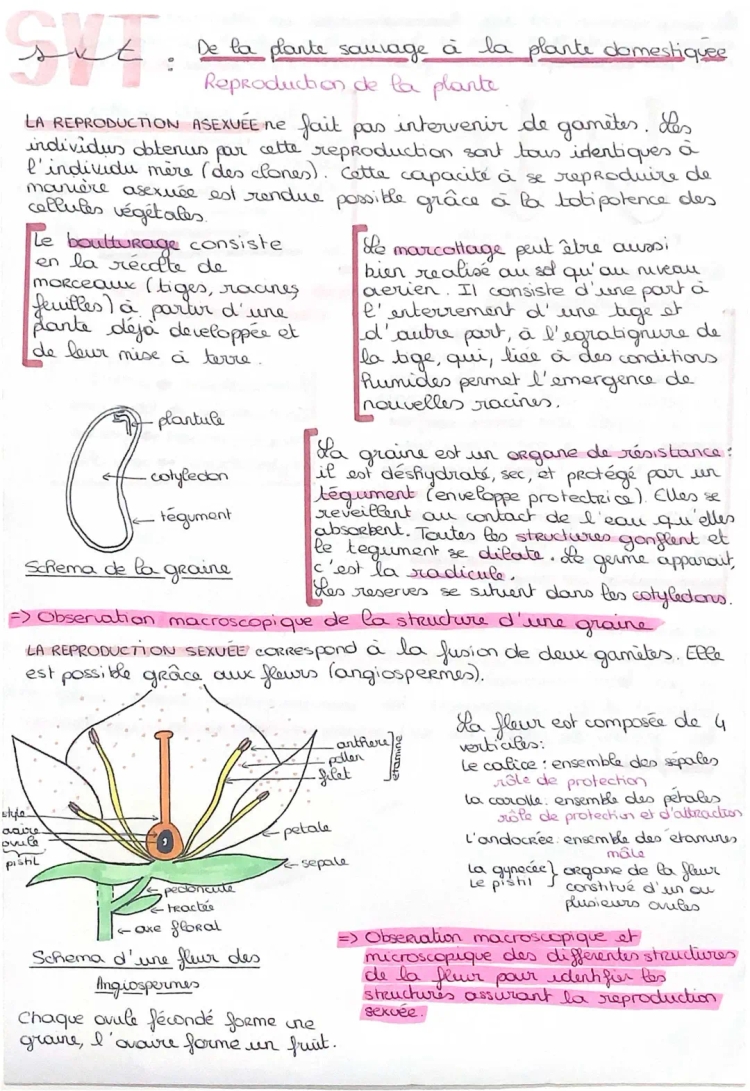 SVT
svt : De la plante sauvage à la plante domestiquée
Reproduction de la plante
LA REPRODUCTION ASEXUÉE ne fait pas intervenir de gamètes. Les
individus obtenus par cette reproduction sont tous identiques à
l'individu mère (des clones). Cette capacité à se reproduire de
manière asexuée est rendue possible grâce à la totipotence des
cellules végétales.
Le boutturage consiste
en la récolte de
morceaux (tiges, racines,
feuilles) à partir d'une
plante déjà developpée et
de leur mise à terre.
Le marcottage peut être aussi
bien realisé au sol qu'au niveau
aerien. Il consiste d'une part à
l'enterrement d'une tige et
d'autre part, à l'egratignure de
la tige, qui, liée à des conditions
humides permet l'emergence de
nouvelles racines.
plantule
cotyledon
tégument
Schema de la graine
La graine est un organe de résistance :
il est déshydraté, sec, et protégé par un
tégument (enveloppe protectrice). Elles se
réveillent au contact de l'eau qu'elles
absorbent. Toutes les structures gonflent et
le tegument se dilate. Le germe apparait,
c'est la radicule.
Les reserves se situent dans les cotyledons.
=> Observation macroscopique de la structure d'une graine
LA REPRODUCTION SEXUÉE correspond à la fusion de deux gamètes. Elle
est possible grâce aux fleurs (angiospermes).
anthère
pollen
filet
étamine
style
ovaire
ovule
pistil
petale
sepale
pedoncule
tractée
axe floral
Schema d'une fleur des
Angiospermes
Chaque ovule fécondé forme une
graine, l'ovaire forme un fruit.
La fleur est composée de 4
verticules:
Le calice : ensemble des sépales
rôle de protection
La corolle: ensemble des pétales
rôle de protection et d'attraction
L'andocrée: ensemble des étamines
mâle
La gynecée } organe de la fleur
Le pistil constitué d'un ou
plusieurs ovules
=> Observation macroscopique et
microscopique des differentes structures
de la fleur pour identifier les
structures assurant la reproduction
sexuée.